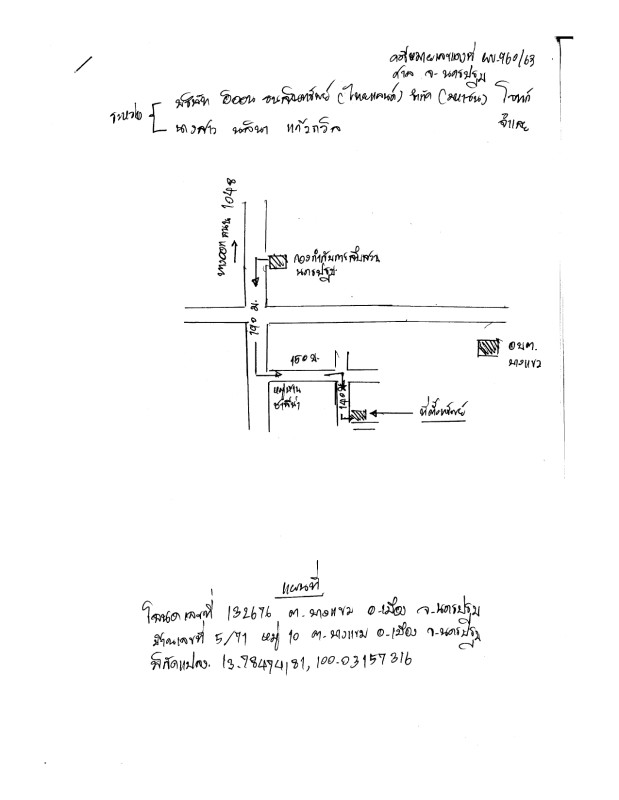 คดีหมายเลขแดงที่ ผบ.960/63
ศาล จ.นครปฐม
ระหว่าง
บริษัท อิออน ธนสินทรัพย์ (ไทยแลนด์) จำกัด (มหาชน) โจทก์
นางสาว แก้วถวิล จำเลย
ทางออก ถนน 1048
กองกำกับการสืบสวน
นครปฐม
190 ม.
150 ม.
140 ม.
หมู่บ้าน
ที่ตั้งทรัพย์
อบต.
บางแขม
แผนที่
โฉนดเลขที่ 132676 ต.บางแขม อ.เมือง จ.นครปฐม
บ้านเลขที่ 5/71 หมู่ 10 ต.บางแขม อ.เมือง จ.นครปฐม
พิกัดแปลง. 13.78494181, 100.03157316